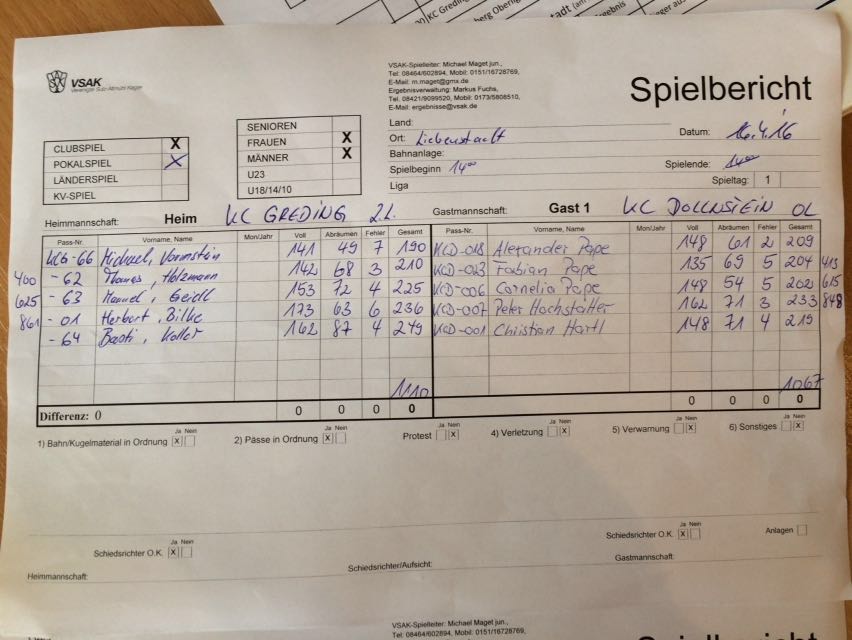 KC Greding
VSAK
Vereinigte Sulz-Altmühl Kegler
VSAK-Spielleiter: Michael Maget jun.,
Tel: 08464/602894, Mobil: 0151/16728769,
E-Mail: m.maget@gmx.de
Ergebnisverwaltung: Markus Fuchs,
Tel. 08421/9099520, Mobil: 0173/5808510,
E-Mail: ergebnisse@vsak.de
Spielbericht
CLUBSPIEL X
POKALSPIEL X
LÄNDERSPIEL
KV-SPIEL
SENIOREN
FRAUEN X
MÄNNER X
U23
U18/14/10
Land:
Ort: Liebenstadt Datum: 16.4.16
Bahnanlage:
Spielbeginn 14⁰⁰ Spielende:
Liga Spieltag: 1
Heimmannschaft: Heim KC GREDING 2.L. Gastmannschaft: Gast 1 KC DOLLNSTEIN OL
Pass-Nr. Vorname, Name Mon/Jahr Voll Abräumen Fehler Gesamt Pass-Nr. Vorname, Name Mon/Jahr Voll Abräumen Fehler Gesamt
-66 Michael, 141 49 7 190 KCD-018 Alexander Pape 148 61 2 209
400 -62 Thomas, Holzmann 142 68 3 210 KCD-023 Fabian Pape 135 69 5 204 413
625 -63 Manuel, Seidl 153 72 4 225 KCD-006 Cornelia Pape 148 54 5 202 615
861 -01 Herbert, Bilke 173 63 6 236 KCD-007 Peter Hochstätter 162 71 3 233 848
-64 Basti, Koller 162 87 4 249 KCD-001 Christian Härtl 148 71 4 219
1110 1067
Differenz: 0 0 0 0 0 0 0 0 0
1) Bahn/Kugelmaterial in Ordnung Ja Nein X 2) Pässe in Ordnung Ja Nein X Protest Ja Nein X 4) Verletzung Ja Nein X 5) Verwarnung Ja Nein X 6) Sonstiges Ja Nein X
Schiedsrichter O.K. Ja Nein X Schiedsrichter O.K. Ja Nein X Anlagen
Heimmannschaft: Schiedsrichter/Aufsicht: Gastmannschaft:
VSAK-Spielleiter: Michael Maget jun.,
Tel: 08464/602894, Mobil: 0151/16728769,
Spielbericht